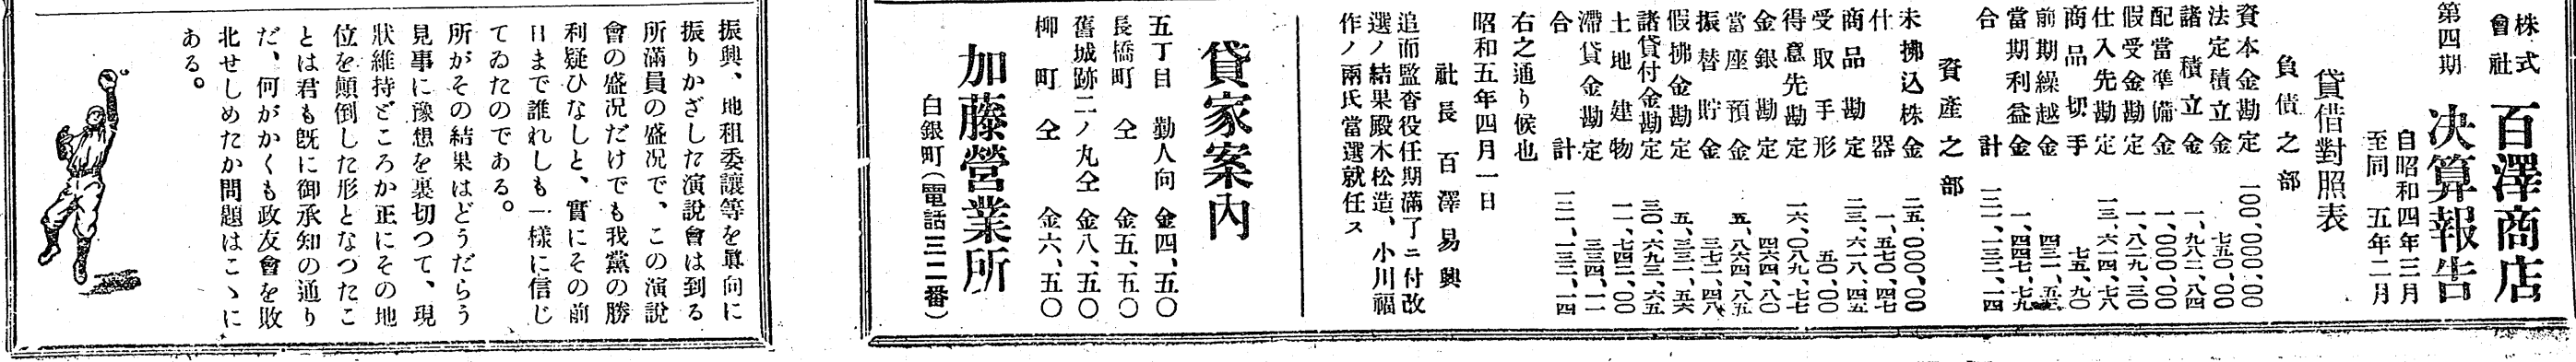 株式會社 百澤商店
第四期 決算報告
自昭和四年三月
至同 五年二月
貸借對照表
負債之部
資本金勘定 一〇〇、〇〇〇、〇〇
法定積立金 七五〇、〇〇
諸積立金 一、九八二、八四
配當準備金 一、〇〇〇、〇〇
假受金勘定 一、八二九、三〇
仕入先勘定 一三、六一四、七八
商品切手 七五、九〇
前期繰越金
當期利益金 一、四四七、七九
合計 一二一、一三二、一四
資產之部
未拂込株金 二五、〇〇〇、〇〇
什器 一、五七〇、四七
商品勘定 二三、六一八、四五
受取手形 五〇、〇〇
得意先勘定 一六、〇八九、七七
金銀勘定 四六四、八〇
當座預金 五、八六四、八五
振替貯金 三七二、四八
假拂金勘定 五、三三一、五六
諸貸付金勘定 三〇、六九三、六五
土地建物 一一、七四二、〇〇
滯貸金勘定 三三四、一一
合計 一二一、一三二、一四
右之通り候也
昭和五年四月一日
社長 百澤易興
追而監査役任期滿了ニ付改
選ノ結果殿木松造、小川福
作ノ兩氏當選就任ス
貸家案內
五丁目 勤人向 金四、五〇
長橋町 仝 金五、五〇
舊城跡二ノ丸仝 金八、五〇
柳町 仝 金六、五〇
加藤營業所
白銀町（電話三二番）
振興、地租委讓等を眞向に
振りかざした演說會は到る
所滿員の盛況で、この演說
會の盛況だけでも我黨の勝
利疑ひなしと、實にその前
日まで誰れしも一樣に信じ
てゐたのである。
所がその結果はどうだらう
見事に豫想を裏切つて、現
狀維持どころか正にその地
位を顚倒した形となつたこ
とは君も旣に御承知の通り
だ、何がかくも政友會を敗
北せしめたか問題はこゝに
ある。